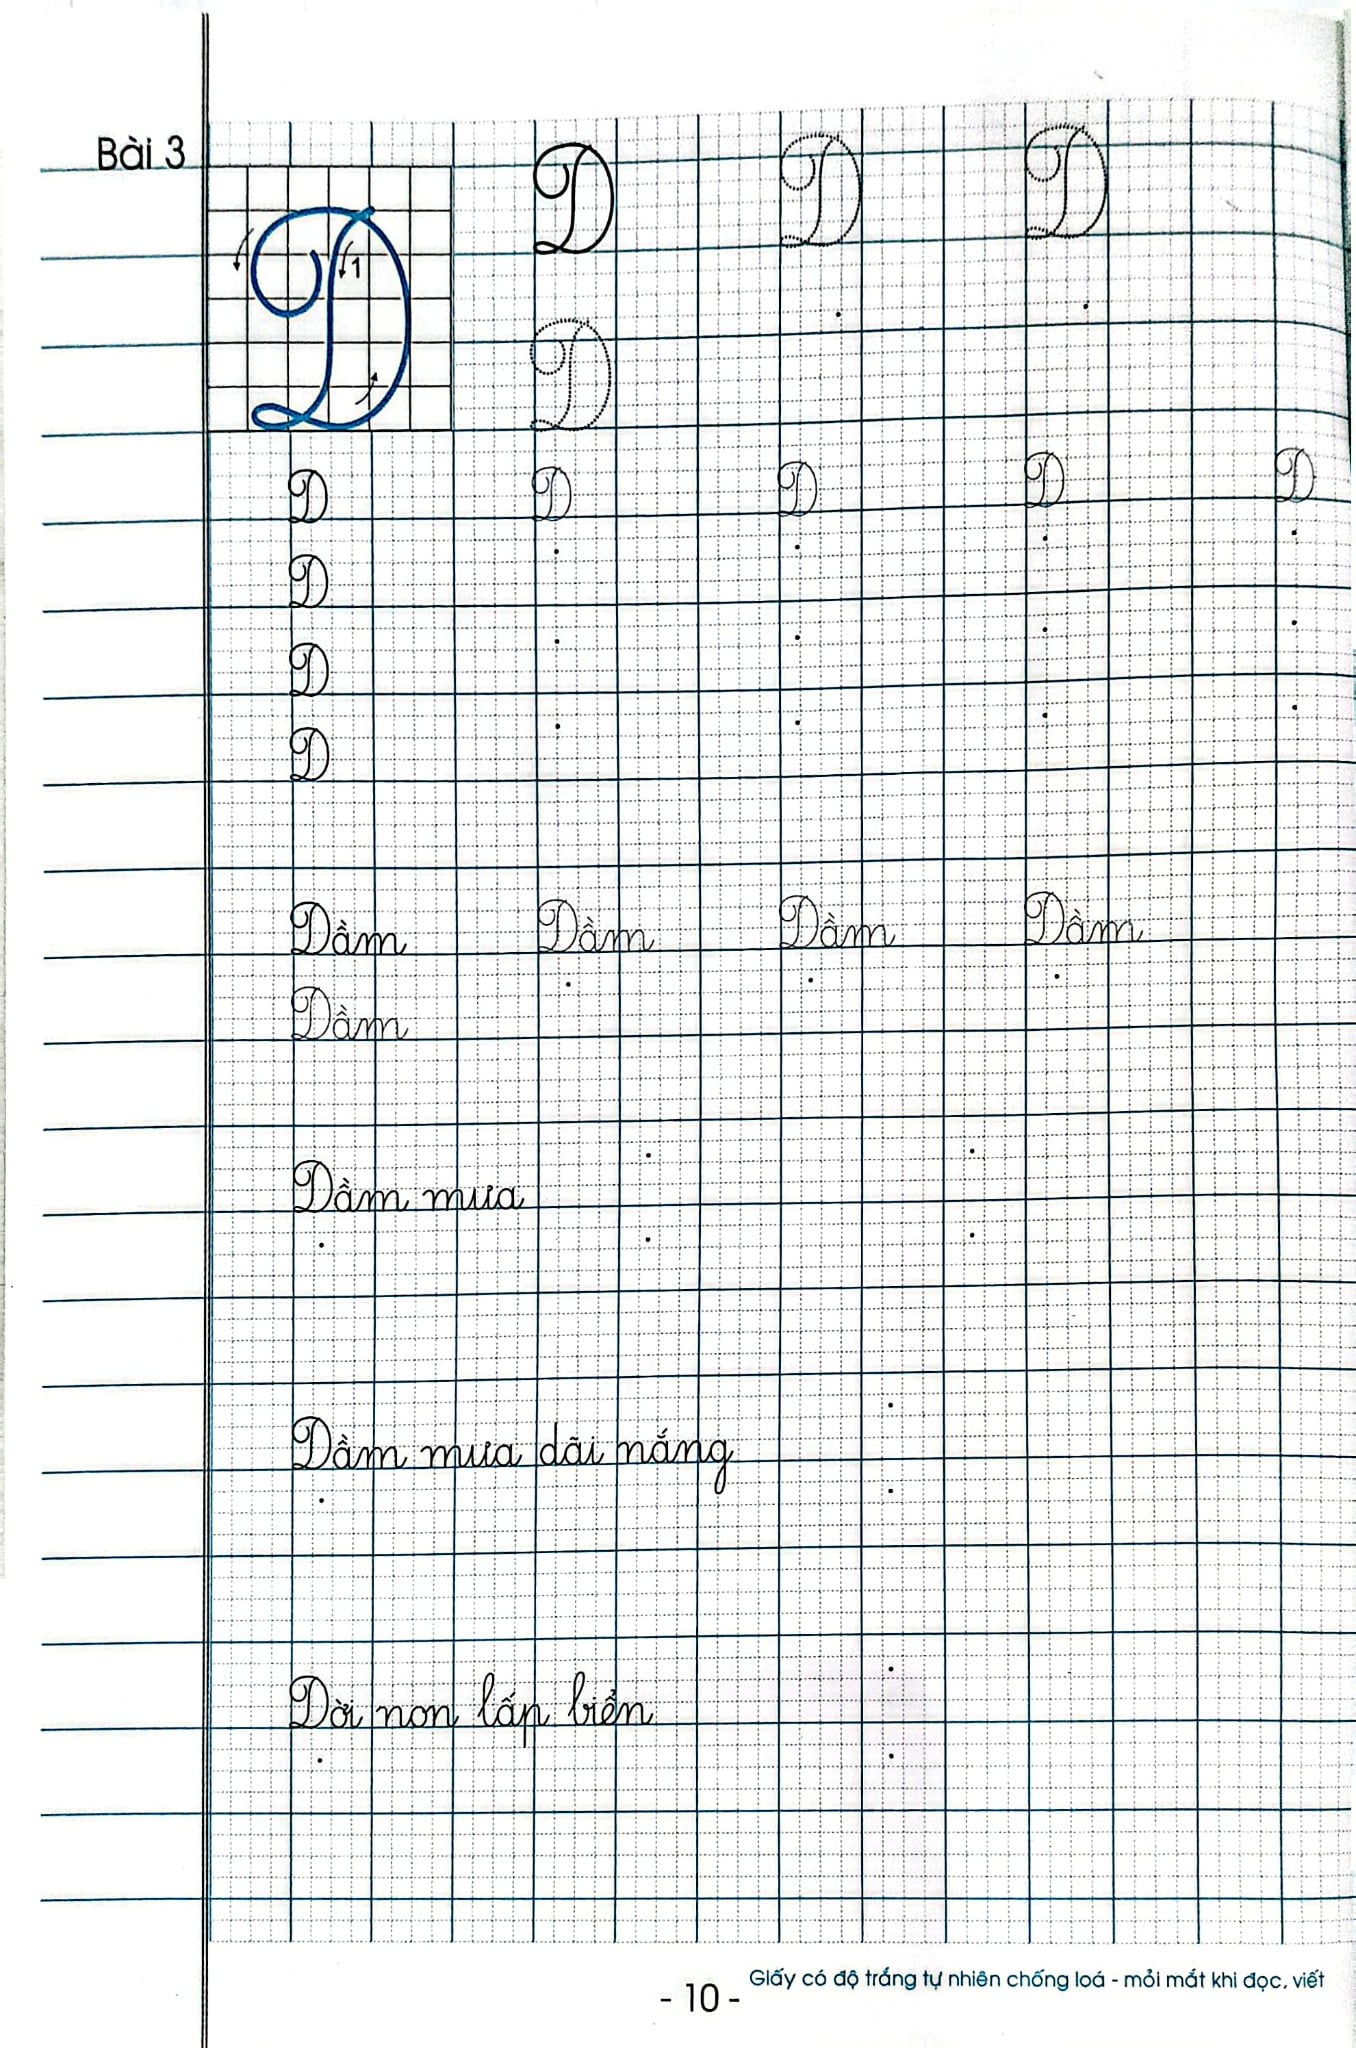 Bài 3
D D D
1
D
D D D D D
D
D
D
Dầm Dầm Dầm Dầm
Dầm
Dầm mưa
Dầm mưa dãi nắng
Dời non lấp biển
Giấy có độ trắng tự nhiên chống loá - mỏi mắt khi đọc, viết
- 10 -